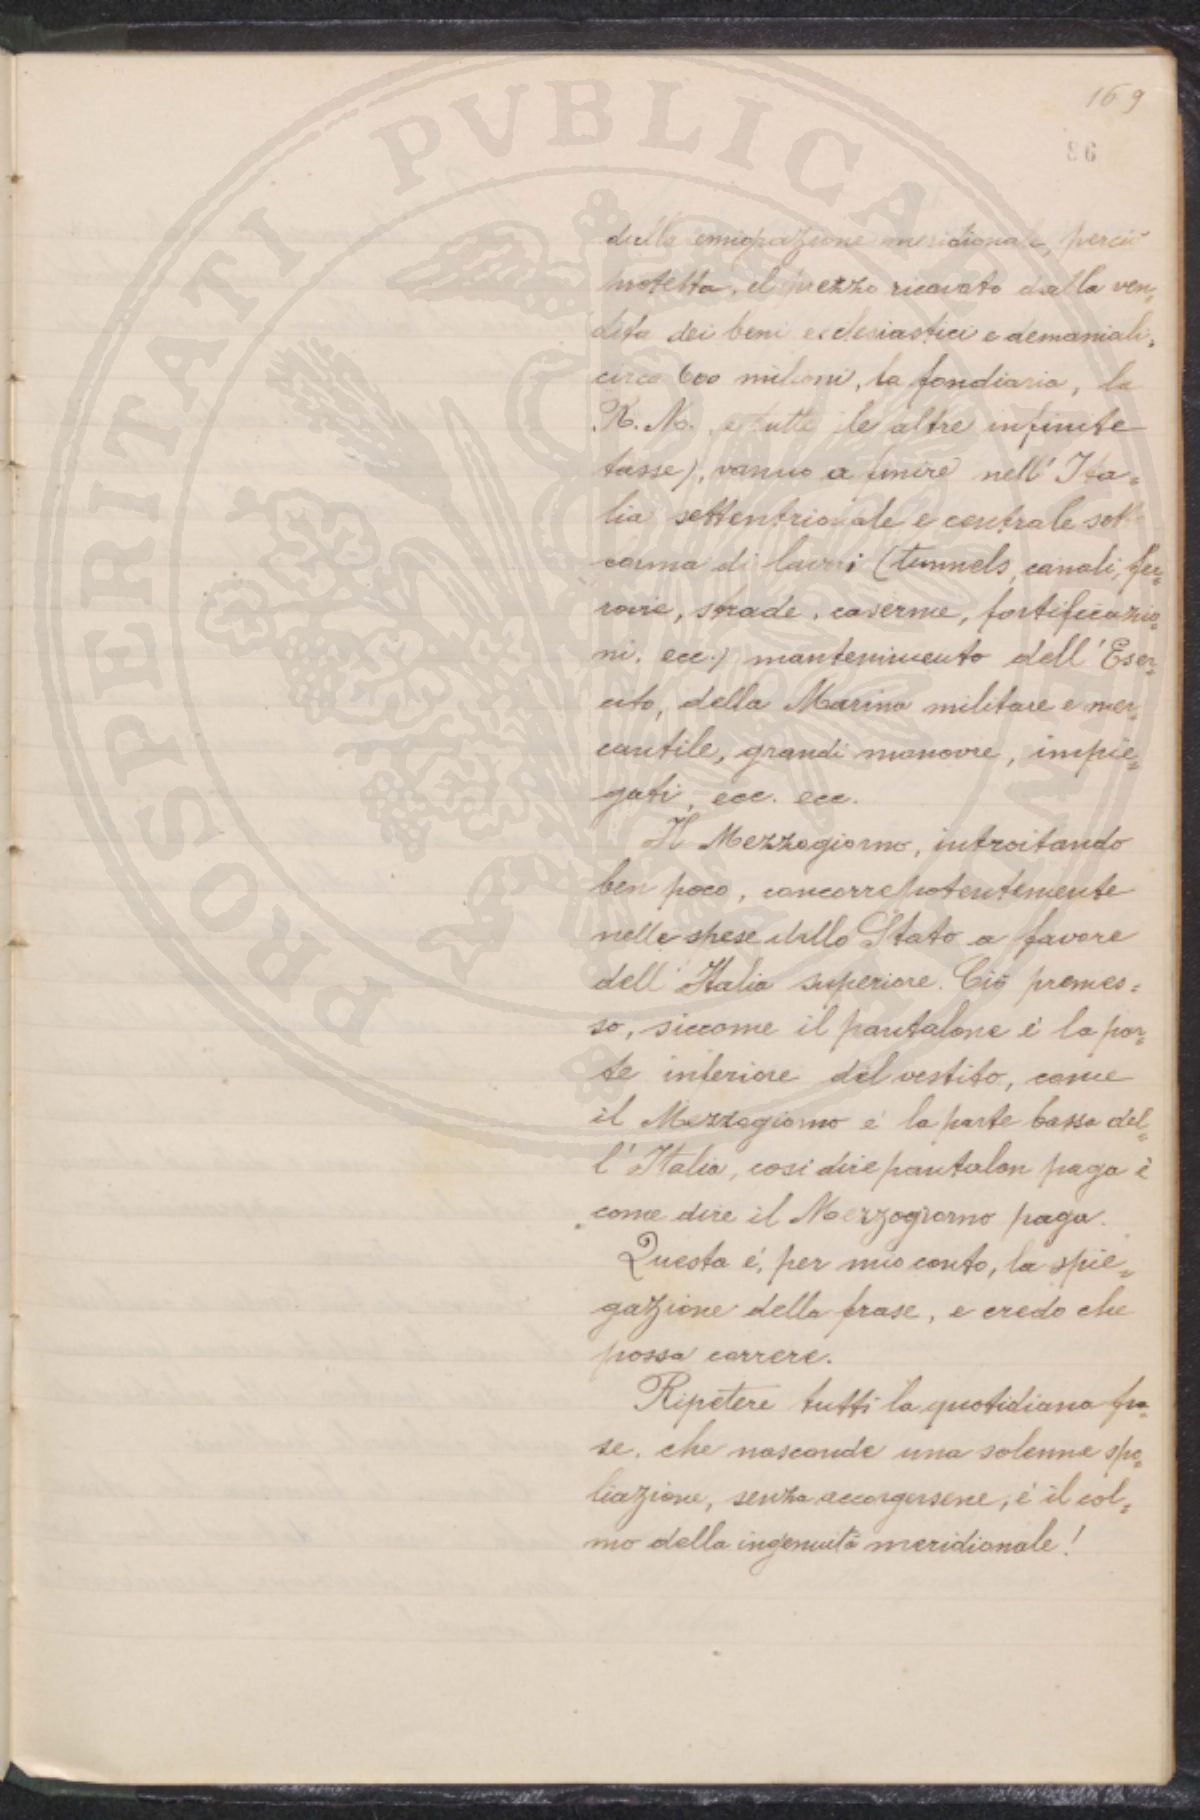 169
96
PROSPERITATI PVBLICAE
della emigrazione meridionale, perciò
protetta, il prezzo ricavato dalla ven=
dita dei beni ecclesiastici e demaniali,
circa 600 milioni, la fondiaria, la
R. M. e tutte le altre infinite
tasse), vanno a finire nell'Ita=
lia settentrionale e centrale sotto
forma di lavori (tunnels, canali, fer=
rovie, strade, caserme, fortificazio=
ni, ecc.) mantenimento dell'Eser=
cito, della Marina militare e mer=
cantile, grandi manovre, impie=
gati, ecc. ecc.
Il Mezzogiorno, introitando
ben poco, concorre potentemente
nelle spese dello Stato a favore
dell'Italia superiore. Ciò premes=
so, siccome il pantalone è la par=
te inferiore del vestito, come
il Mezzogiorno è la parte bassa del=
l'Italia, così dire pantalon paga è
come dire il Mezzogiorno paga.
Questa è, per mio conto, la spie=
gazione della frase, e credo che
possa correre.
Ripetere tutti la quotidiana fra=
se, che nasconde una solenne spo=
liazione, senza accorgersene, è il col=
mo della ingenuità meridionale!